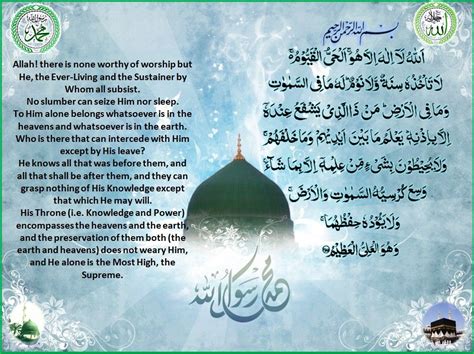 محمد
Allah! there is none worthy of worship but
He, the Ever-Living and the Sustainer by
Whom all subsist.
No slumber can seize Him nor sleep.
To Him alone belongs whatsoever is in the
heavens and whatsoever is in the earth.
Who is there that can intercede with Him
except by His leave?
He knows all that was before them, and
all that shall be after them, and they can
grasp nothing of His Knowledge except
that which He may will.
His Throne (i.e. Knowledge and Power)
encompasses the heavens and the earth,
and the preservation of them both (the
earth and heavens) does not weary Him,
and He alone is the Most High, the
Supreme.
الله
بسم الله الرحمن الرحيم
اَللهُ لَآ اِلٰهَ اِلَّا هُوَ ۚ اَلْحَيُّ الْقَيُّوْمُ ۚ
لَا تَأْخُذُهٗ سِنَةٌ وَّلَا نَوْمٌ ؕ لَهٗ مَا فِي السَّمٰوٰتِ
وَمَا فِي الْاَرْضِ ؕ مَنْ ذَا الَّذِيْ يَشْفَعُ عِنْدَهٗٓ
اِلَّا بِاِذْنِهٖ ؕ يَعْلَمُ مَا بَيْنَ اَيْدِيْهِمْ وَمَا خَلْفَهُمْ ۚ
وَلَا يُحِيْطُوْنَ بِشَيْءٍ مِّنْ عِلْمِهٖٓ اِلَّا بِمَا شَآءَ ۚ
وَسِعَ كُرْسِيُّهُ السَّمٰوٰتِ وَالْاَرْضَ ۚ
وَلَا يَئُوْدُهٗ حِفْظُهُمَا ۚ
وَهُوَ الْعَلِيُّ الْعَظِيْمُ
محمد رسول الله